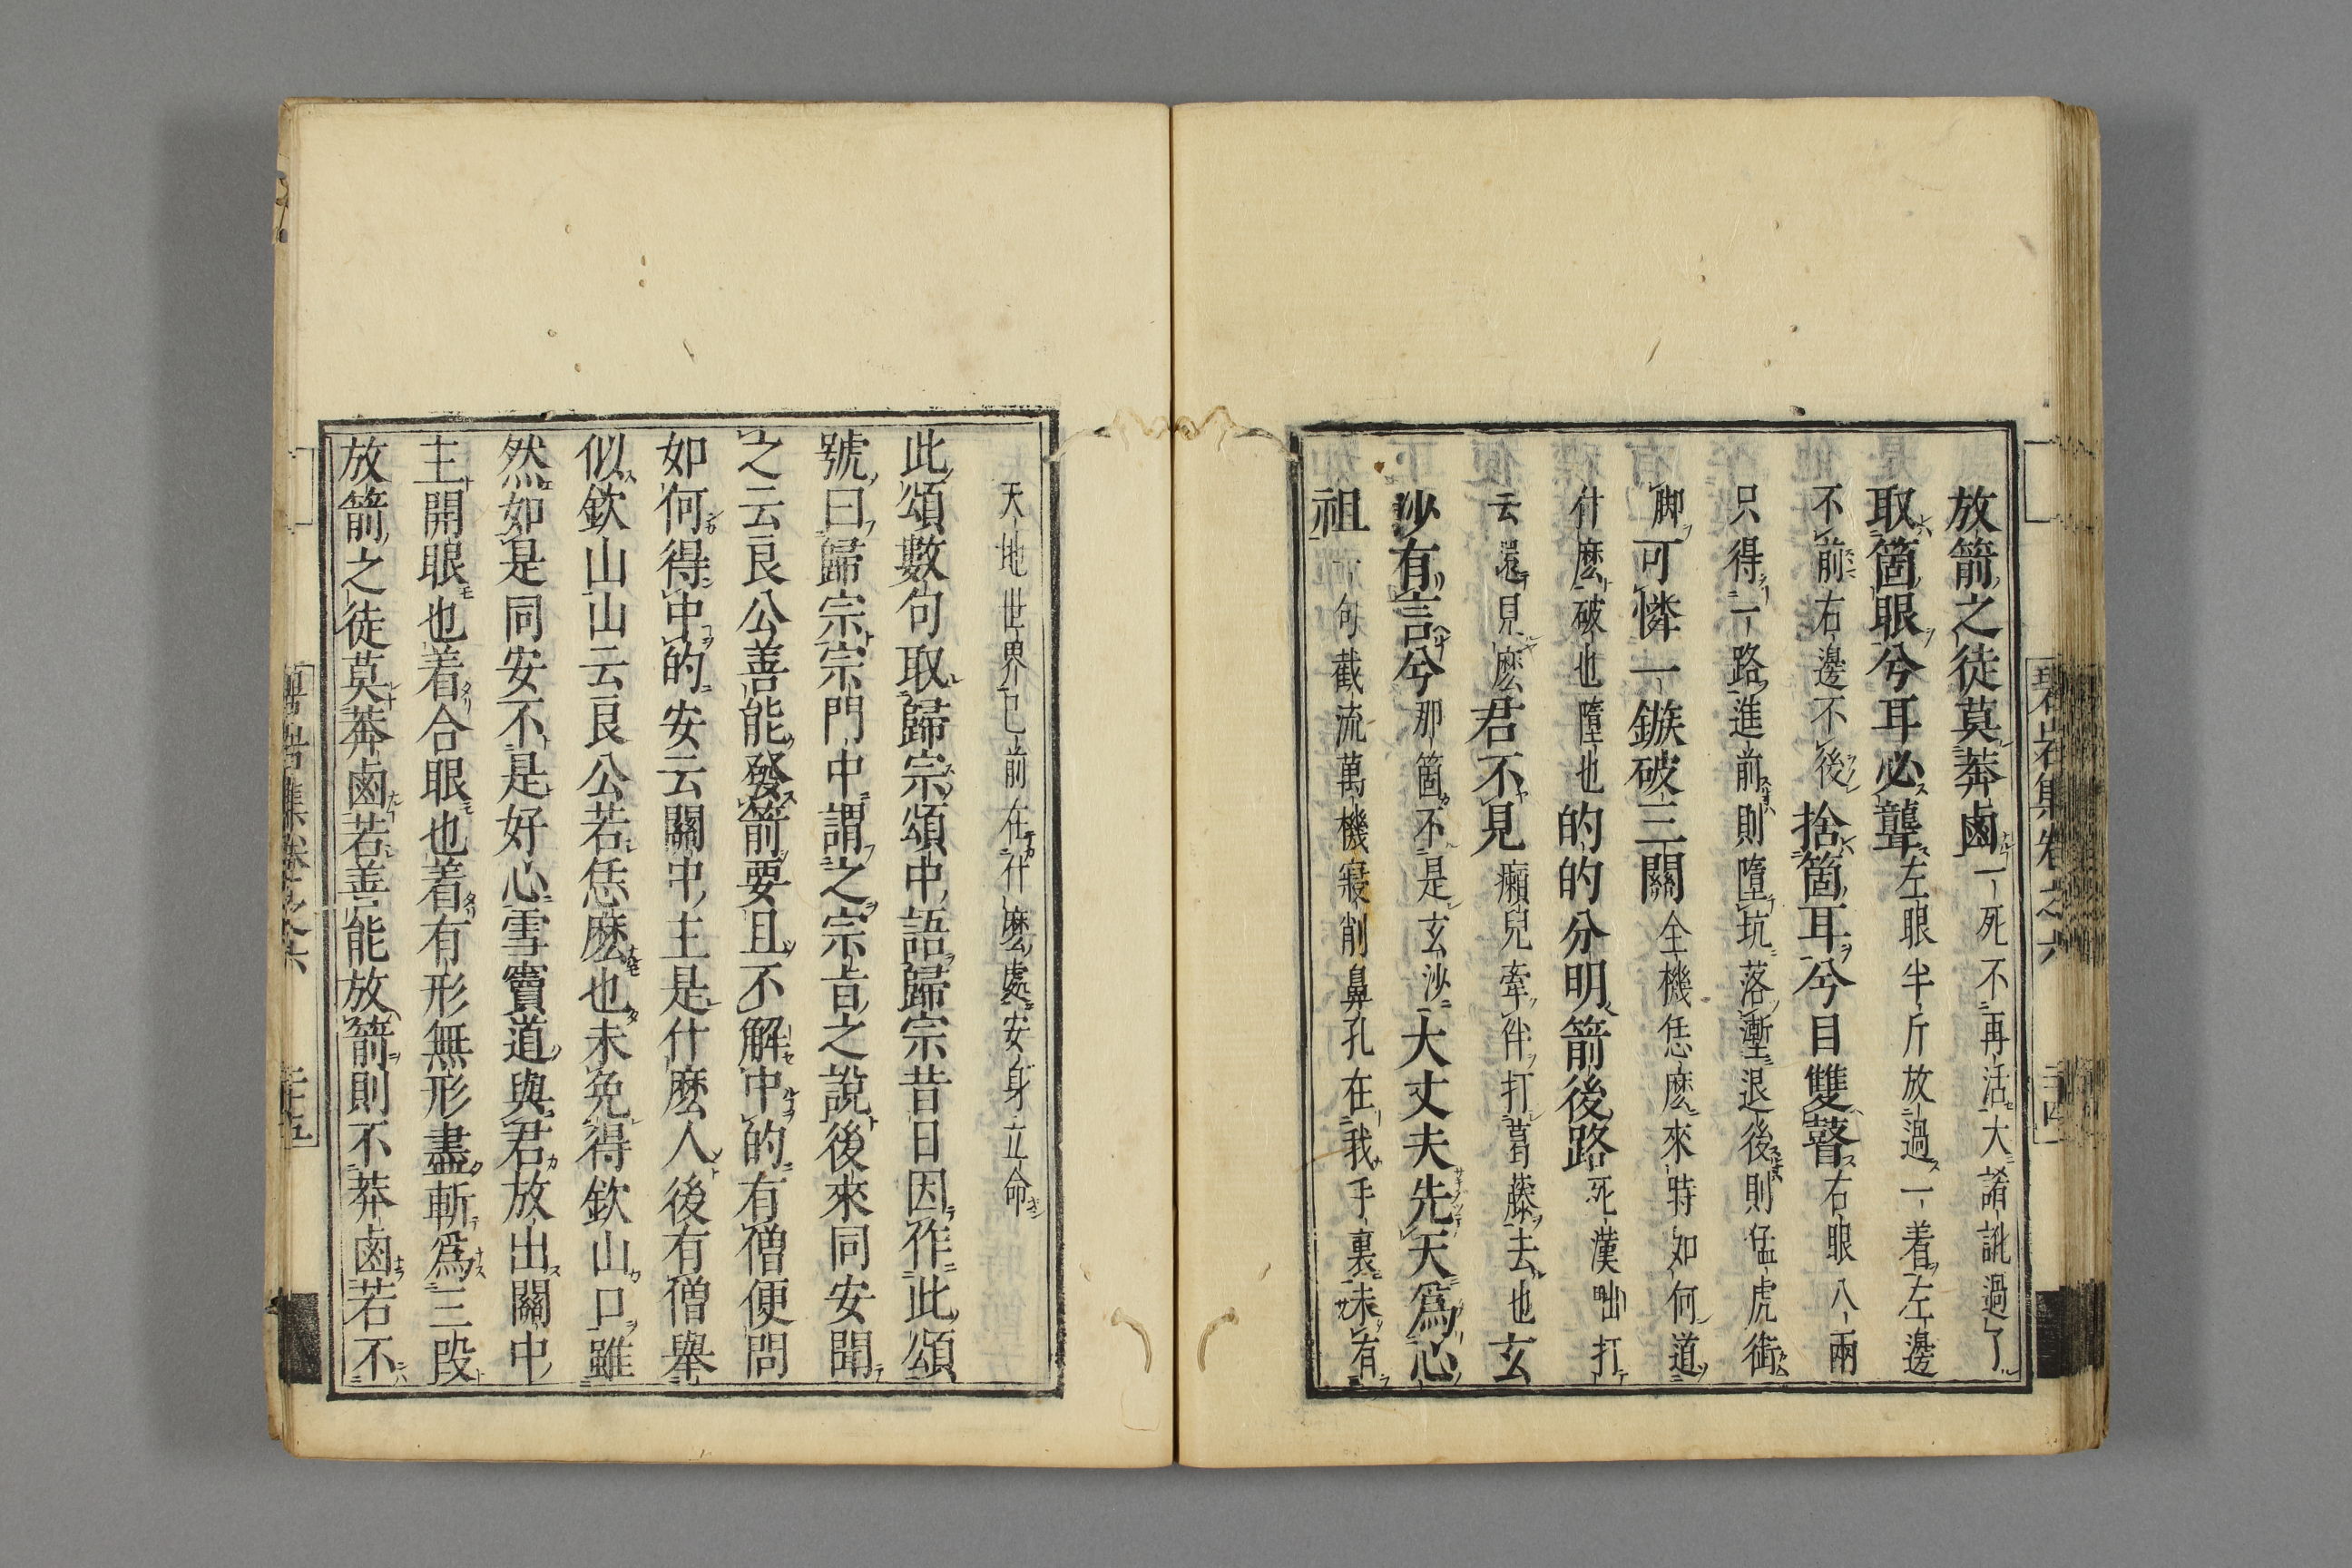 碧岩集卷之六
放箭之徒莫莾鹵一死不再活大誵訛過了
取箇眼兮耳必聾左眼半斤放過一着左邊
不前右邊不後捨箇耳兮目雙瞽右眼八兩
只得一路進前則墮坑落塹退後則猛虎銜
脚可憐一鏃破三關全機恁麽來時如何道
什麽破也墮也的的分明箭後路死漢咄打
云還見麽君不見癩兒牽伴打葛藤去也玄
沙有言兮那箇不是玄沙大丈夫先天爲心
祖一句截流萬機寢削鼻孔在我手裏未有
天地世界已前在什麽處安身立命
此頌數句取歸宗頌中語歸宗昔日因作此頌
號曰歸宗宗門中謂之宗旨之說後來同安聞
之云良公善能發箭要且不解中的有僧便問
如何得中的安云關中主是什麽人後有僧舉
似欽山山云良公若恁麽也未免得欽山口雖
然如是同安不是好心雪竇道與君放出關中
主開眼也着合眼也着有形無形盡斬爲三段
放箭之徒莫莾鹵若善能放箭則不莽鹵若不